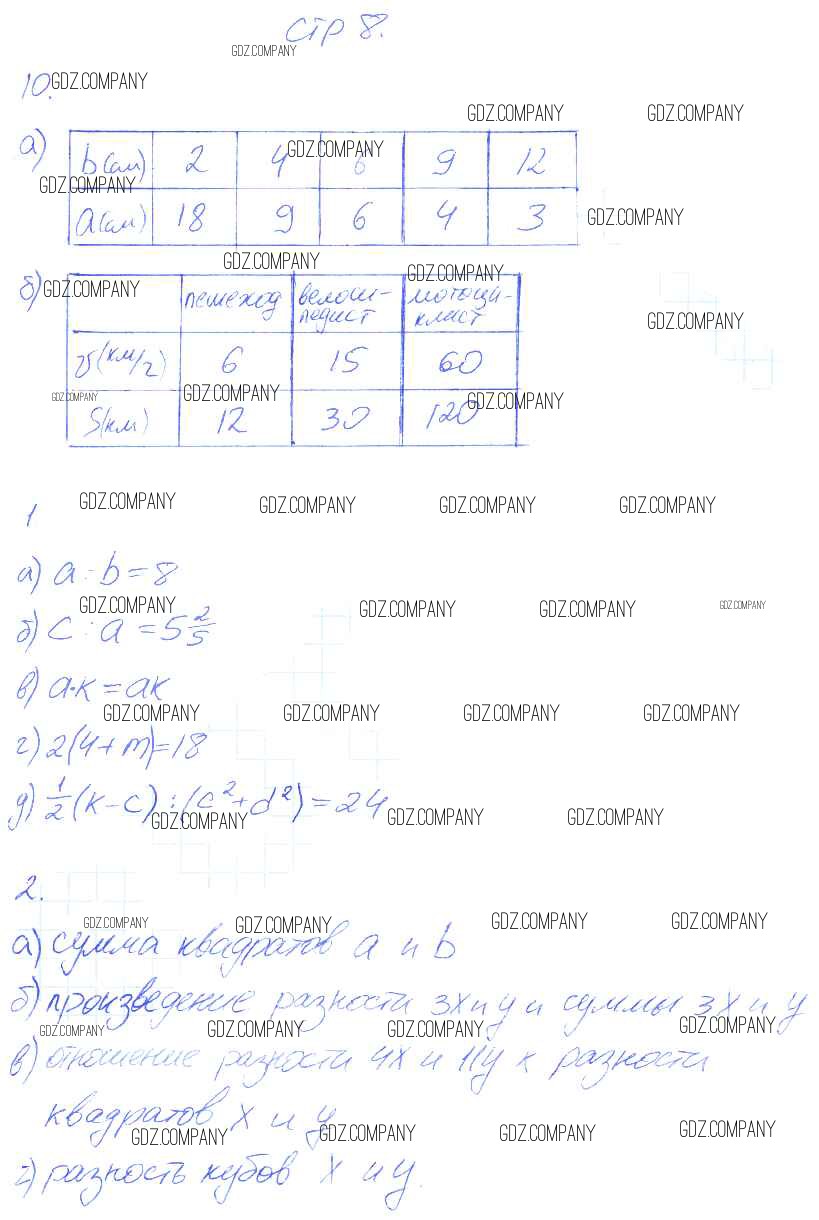 стр 8.
GDZ.COMPANY
10. GDZ.COMPANY
GDZ.COMPANY GDZ.COMPANY
а) b(см) 2 4 6 9 12
GDZ.COMPANY
GDZ.COMPANY
a(см) 18 9 6 4 3
GDZ.COMPANY
GDZ.COMPANY GDZ.COMPANY
б) GDZ.COMPANY
пешеход велоси- мотоци-
педист клист
GDZ.COMPANY
v(км/ч) 6 15 60
GDZ.COMPANY GDZ.COMPANY GDZ.COMPANY
S(км) 12 30 120
GDZ.COMPANY GDZ.COMPANY GDZ.COMPANY GDZ.COMPANY
1
а) a - b = 8
GDZ.COMPANY GDZ.COMPANY GDZ.COMPANY GDZ.COMPANY
б) c : a = 5 2/5
в) a·к = aк
GDZ.COMPANY GDZ.COMPANY GDZ.COMPANY GDZ.COMPANY
г) 2(4+m)=18
д) 1/2 (к-c) : (c²+d²) = 24
GDZ.COMPANY GDZ.COMPANY GDZ.COMPANY
2.
GDZ.COMPANY GDZ.COMPANY GDZ.COMPANY GDZ.COMPANY
а) сумма квадратов a и b
б) произведение разности 3x и y и суммы 3x и y
GDZ.COMPANY GDZ.COMPANY GDZ.COMPANY GDZ.COMPANY
в) отношение разности 4x и 11y к разности
квадратов x и y
GDZ.COMPANY GDZ.COMPANY GDZ.COMPANY GDZ.COMPANY
г) разность кубов x и y.